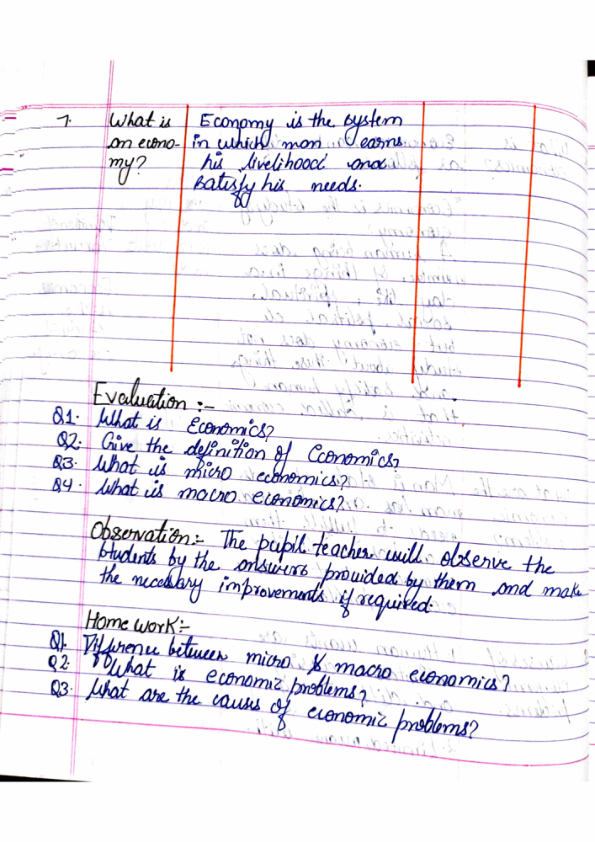 7. What is Economy is the system
an econo- in which man earns
my? his livelihood and
satisfy his needs.
Evaluation :-
Q1. What is Economics?
Q2. Give the definition of Economics?
Q3. What is micro economics?
Q4. What is macro economics?
Observation:- The pupil teacher will observe the
students by the answers provided by them and make
the necessary improvements if required.
Home work:-
Q1. Difference between micro & macro economics?
Q2. What is economic problems?
Q3. What are the causes of economic problems?